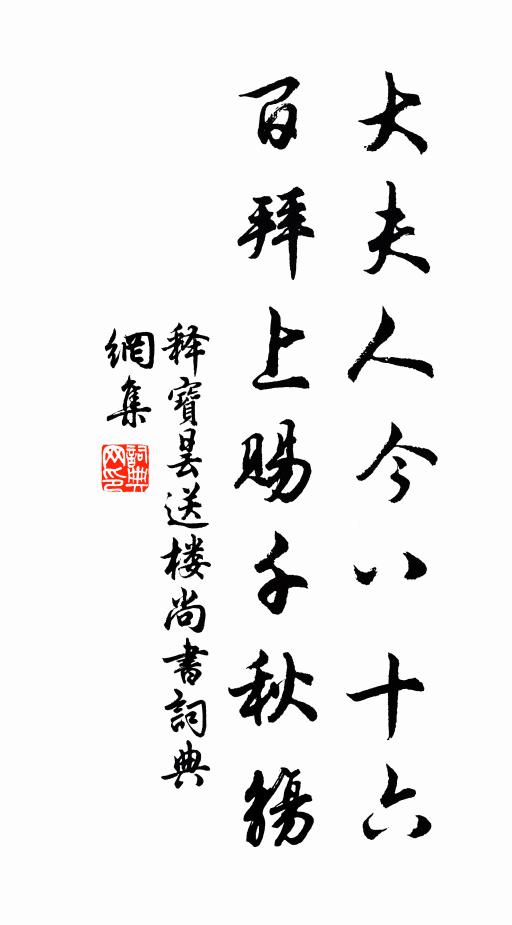 大夫人今八十六
百拜上賜千秋觴
释寶曇送楼尚書詞典
網集
詞典
网印